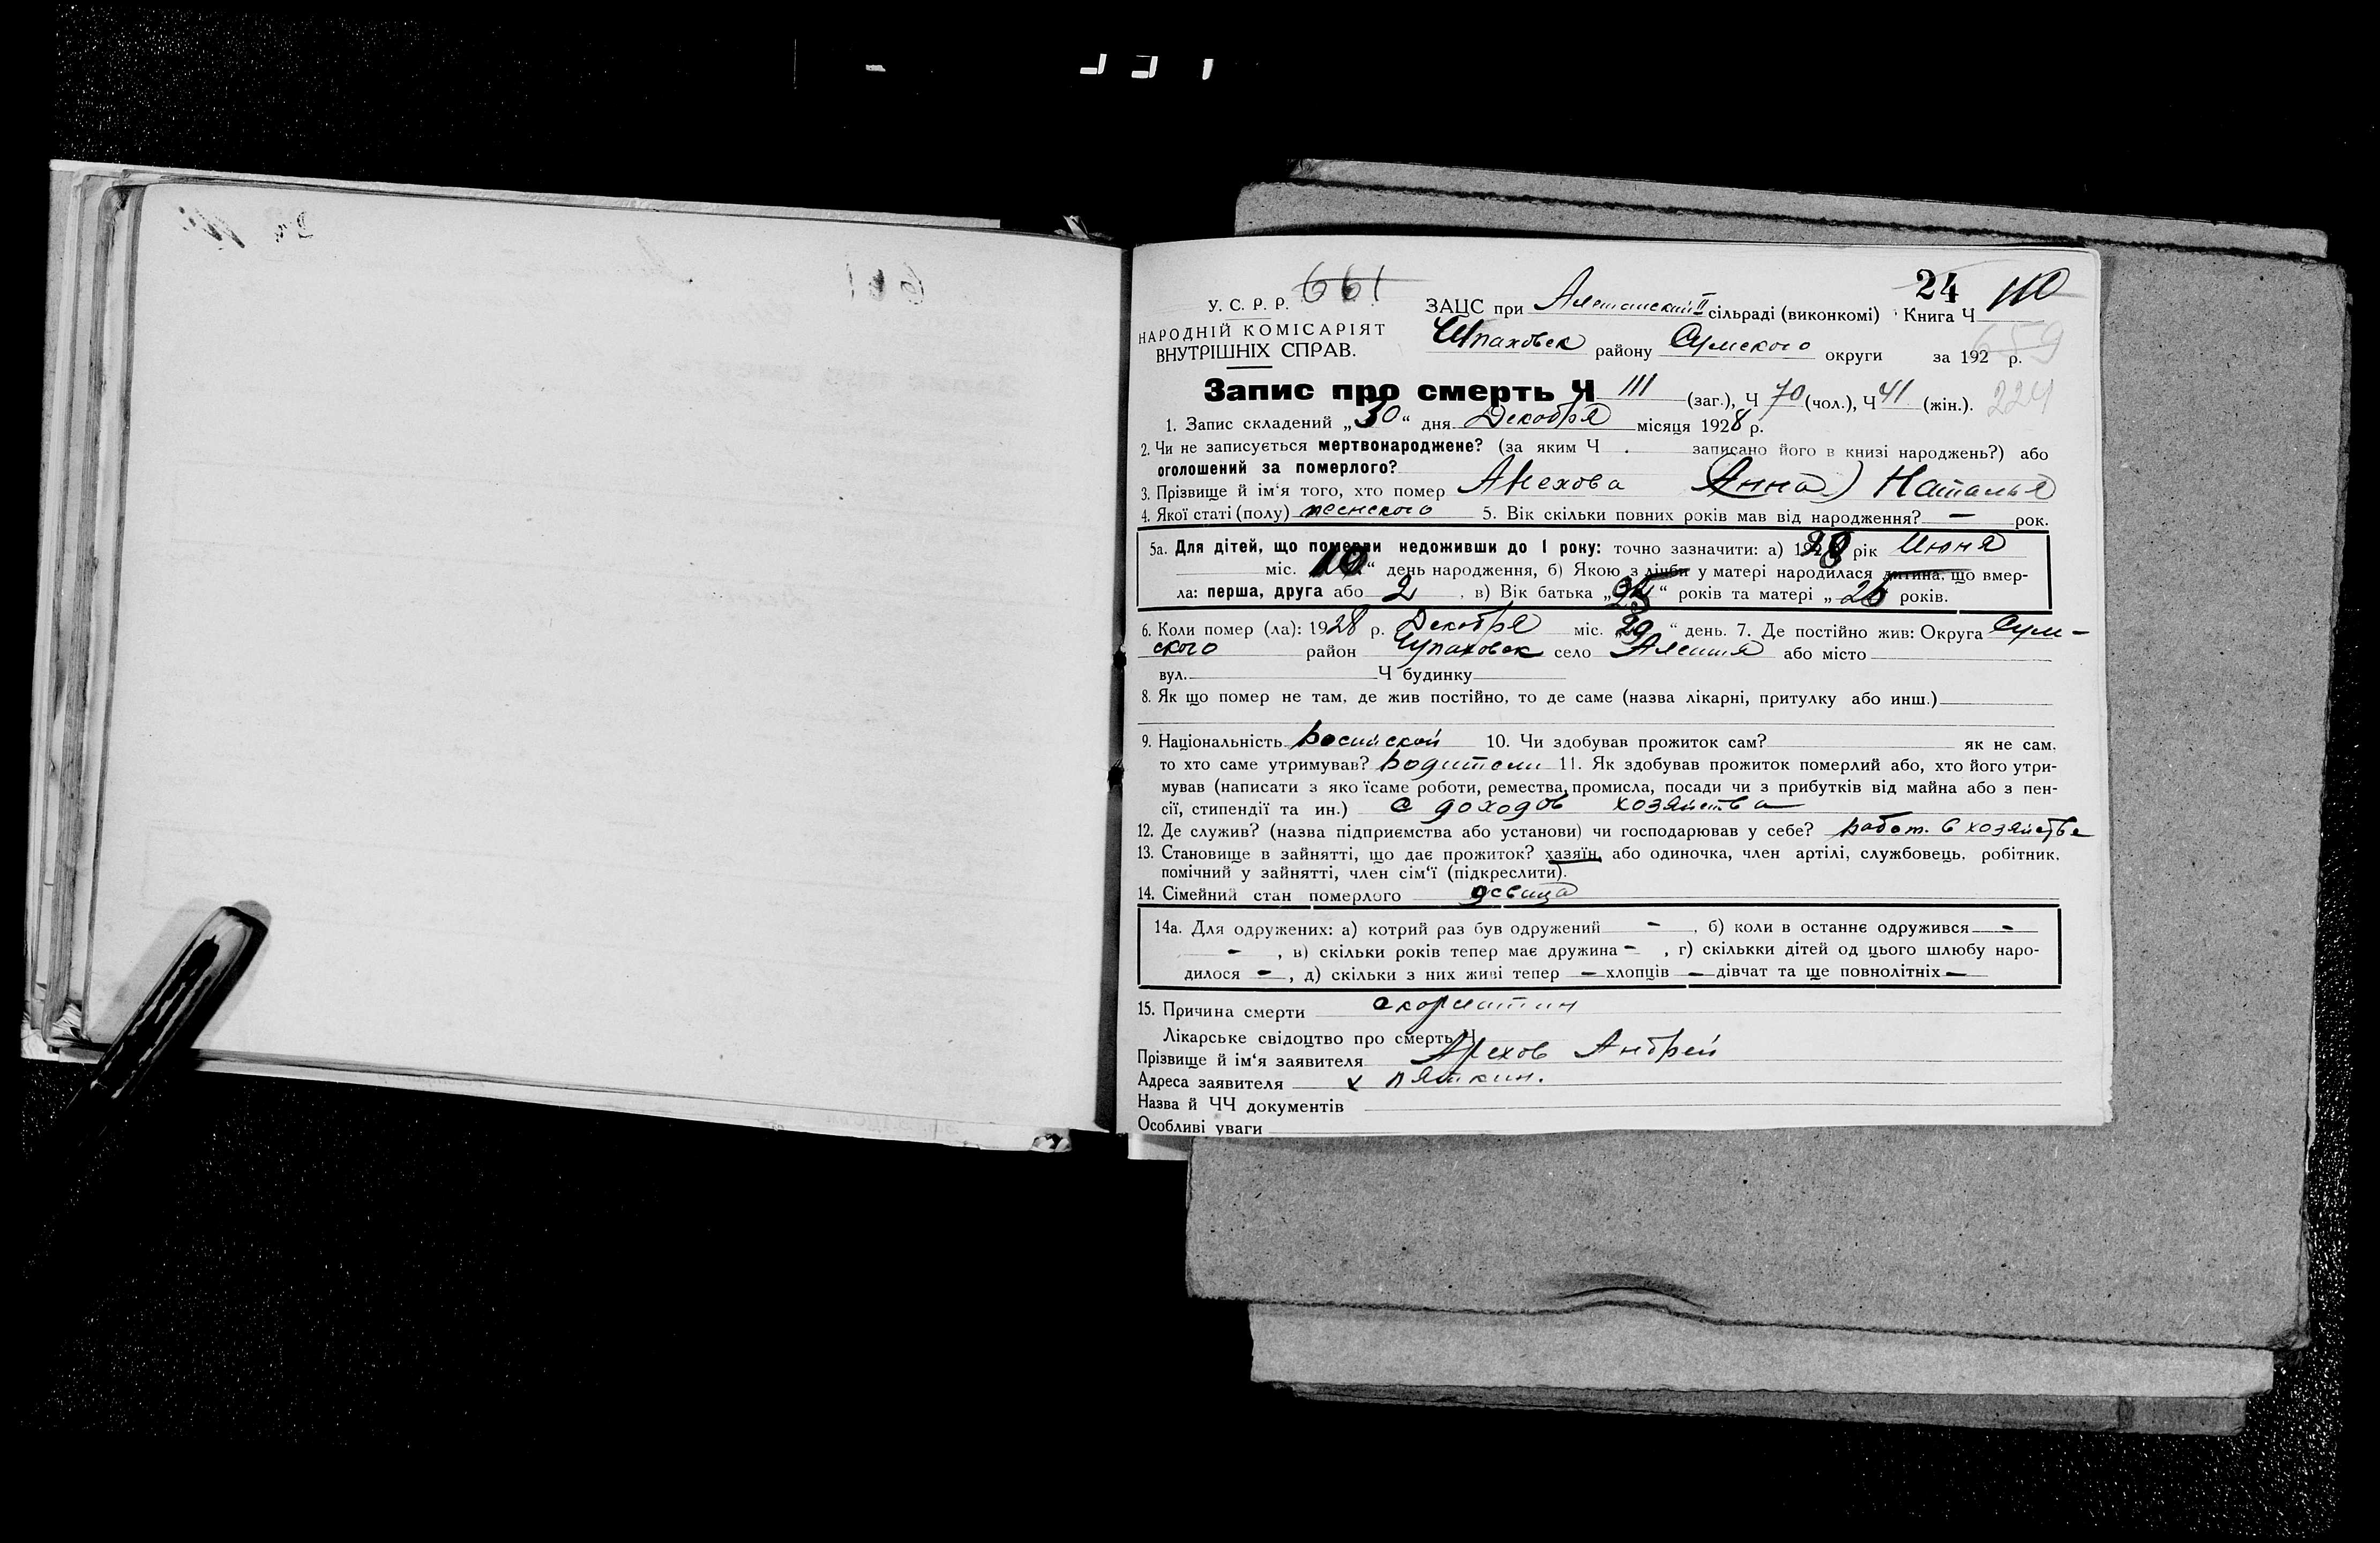 24 110
У. С. Р. Р. 661 ЗАЦС при Алешанский II сільраді (виконкомі) Книга Ч
НАРОДНІЙ КОМІСАРІЯТ
ВНУТРІШНІХ СПРАВ. району Сумского округи за 192 р. 659
Запис про смерть Ч 111 (заг.), Ч 70 (чол.), Ч 41 (жін.). 224
1. Запис складений „30“ дня Декабря місяця 1928 р.
2. Чи не записується мертвонароджене? (за яким Ч записано його в книзі народжень?) або
оголошений за померлого?
3. Прізвище й ім‘я того, хто помер Анна) Наталья
4. Якої статі (полу) женского 5. Вік скільки повних років мав від народження? — рок.
5а. Для дітей, що померли недоживши до 1 року: точно зазначити: а) 1928 рік Июня
міс. 10“ день народження, б) Якою з лічби у матері народилася дитина, що вмер-
ла: перша, друга або 2, в) Вік батька „ “ років та матері „26 років.
6. Коли помер (ла): 1928 р. Декабря міс. „29“ день. 7. Де постійно жив: Округа Сум-
ского район село Алешня або місто
вул. Ч будинку
8. Як що помер не там, де жив постійно, то де саме (назва лікарні, притулку або инш.)
9. Національність Российской 10. Чи здобував прожиток сам? як не сам,
то хто саме утримував? Родители 11. Як здобував прожиток померлий або, хто його утри-
мував (написати з яко їсаме роботи, ремества, промисла, посади чи з прибутків від майна або з пен-
сії, стипендії та ин.) с доходов хозяйства
12. Де служив? (назва підприємства або установи) чи господарював у себе? работ. в хозяйстве
13. Становище в зайнятті, що дає прожиток? хазяїн, або одиночка, член артілі, службовець, робітник,
помічний у зайнятті, член сім‘ї (підкреслити).
14. Сімейний стан померлого девица
14а. Для одружених: а) котрий раз був одружений -, б) коли в останнє одружився -
-, в) скільки років тепер має дружина -, г) скількки дітей од цього шлюбу наро-
дилося -, д) скільки з них живі тепер — хлопців — дівчат та ще повнолітніх —
15. Причина смерти скорлатин
Лікарське свідоцтво про смерть Ч
Прізвище й ім‘я заявителя Андрей
Адреса заявителя х Пяткин.
Назва й ЧЧ документів
Особливі уваги